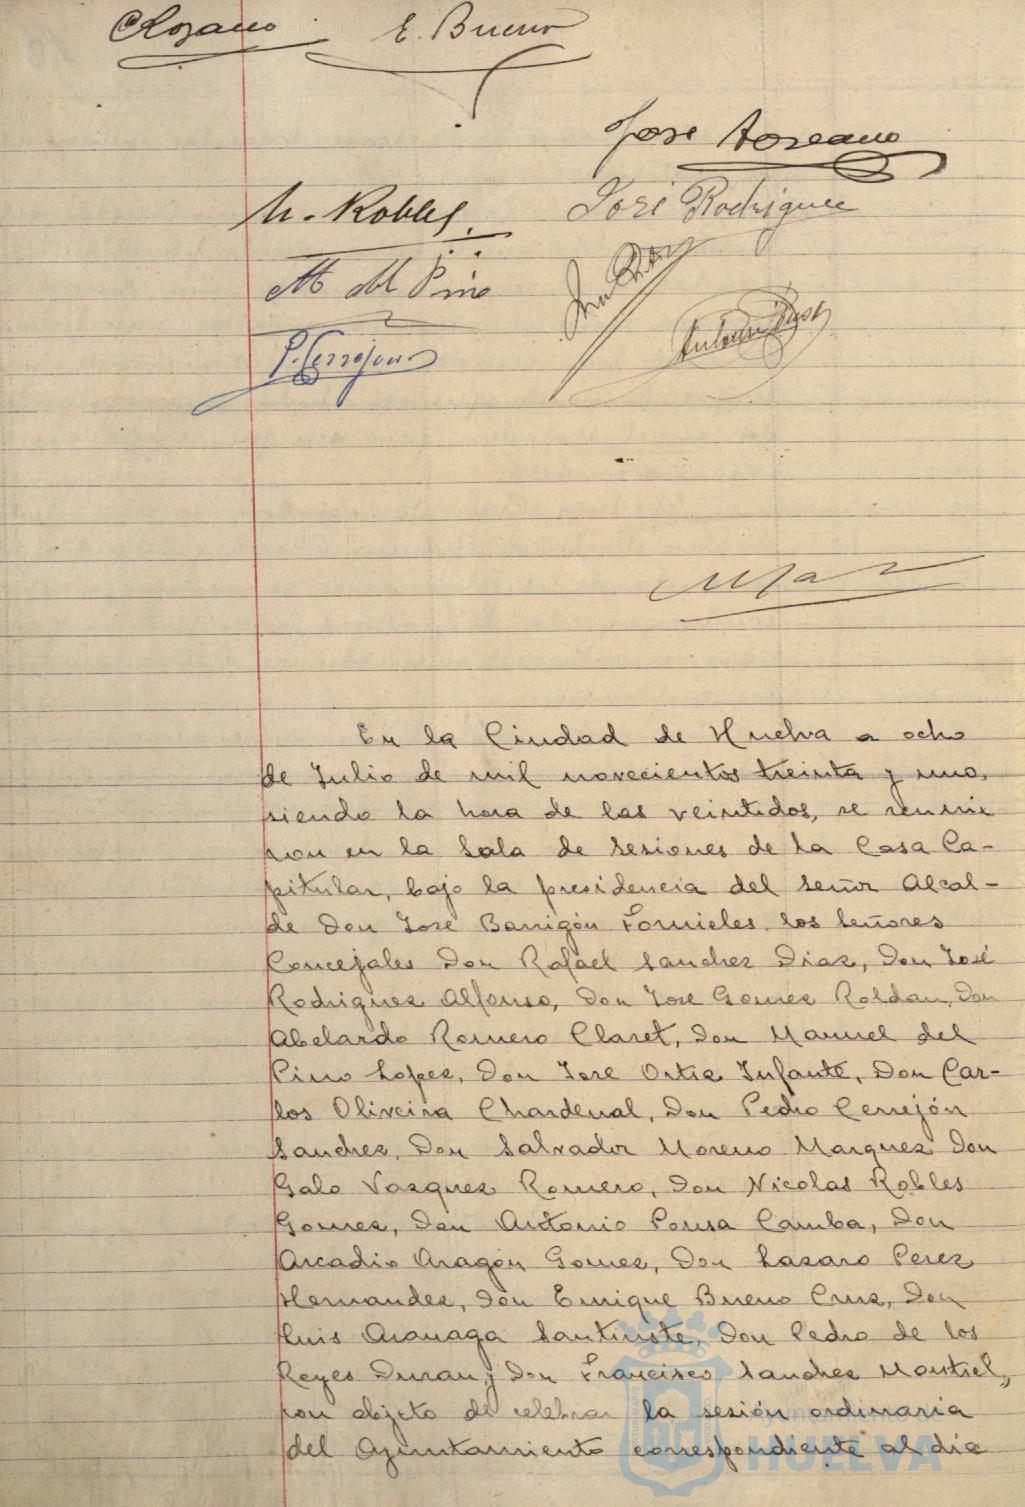 E. Bueno
José
N. Robles
José Rodriguez
M. del Pino
P. Cerrejon
En la Ciudad de Huelva a ocho
de Julio de mil novecientos treinta y uno,
siendo la hora de las veintidos, se reunie
ron en la Sala de Sesiones de la Casa Ca-
pitular, bajo la presidencia del señor Alcal-
de Don José Barrigón Fornieles, los Señores
Concejales Don Rafael Sanchez Diaz, Don José
Rodriguez Alfonso, Don Jose Gomez Roldan, Don
Abelardo Romero Claret, Don Manuel del
Pino Lopez, Don Jose Ortiz Infante, Don Car-
los Oliveira Chardenal, Don Pedro Cerrejón
Sanchez, Don Salvador Moreno Marquez Don
Galo Vazquez Romero, Don Nicolas Robles
Gomez, Don Antonio Pousa Camba, Don
Arcadio Aragón Gomez, Don Lazaro Perez
Hernandez, Don Enrique Bueno Cruz, Don
Luis Aranaga Santiuste, Don Pedro de los
Reyes Duran, y Don Francisco Sanchez Montiel,
con objeto de celebrar la sesión ordinaria
del Ayuntamiento correspondiente al dia
HUELVA